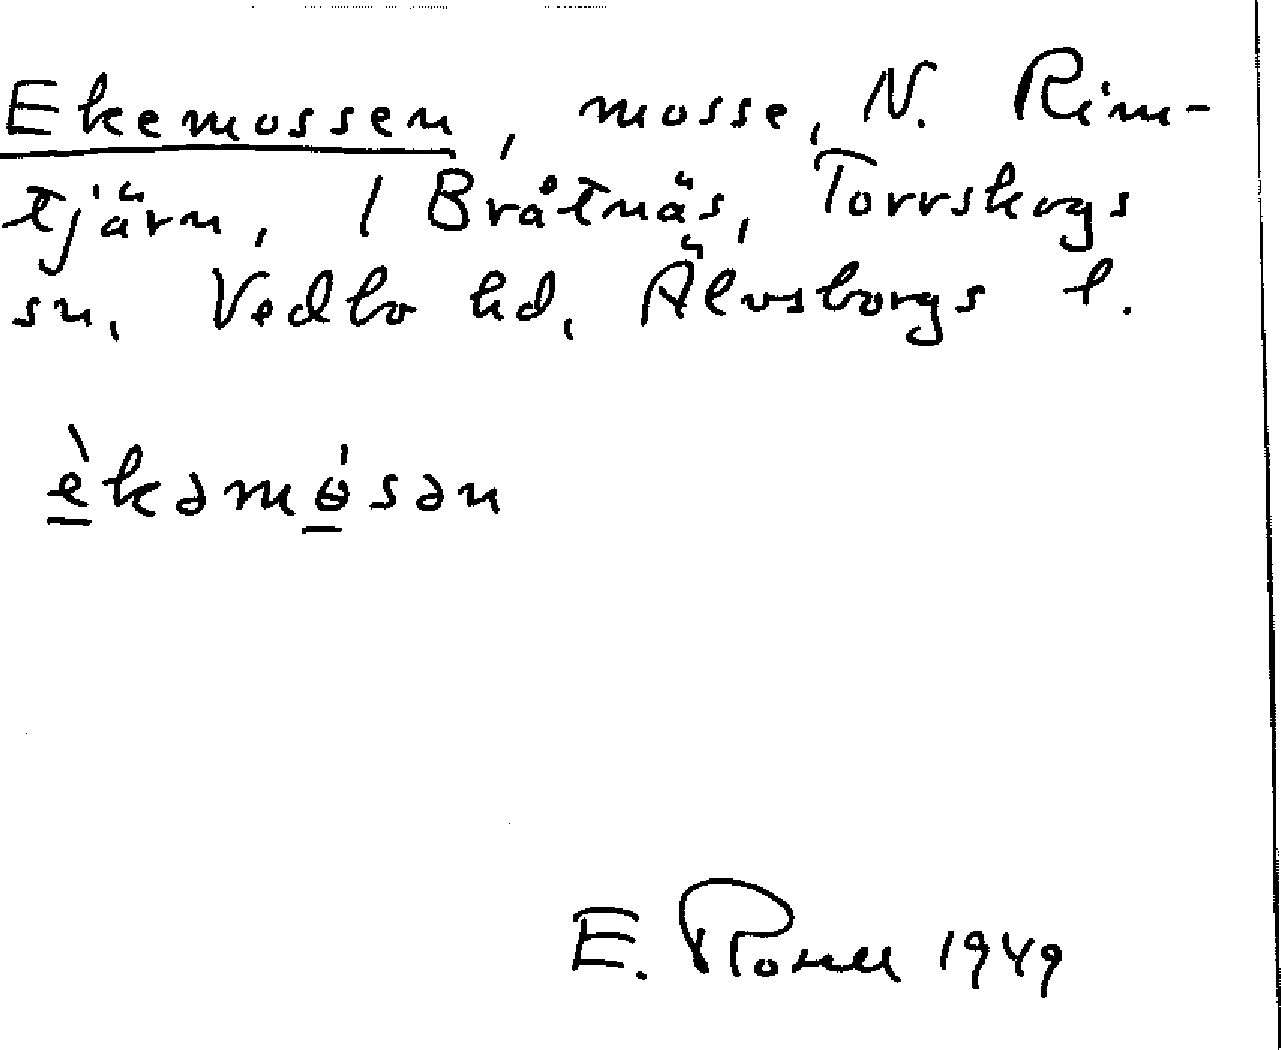 Ekemossen, mosse, N. Rim-
tjärn, / Bråtnäs, Torrskogs
sn, Vedbo hd, Älvsborgs l.
è̱kəmɵ̱́sən
E. 1949